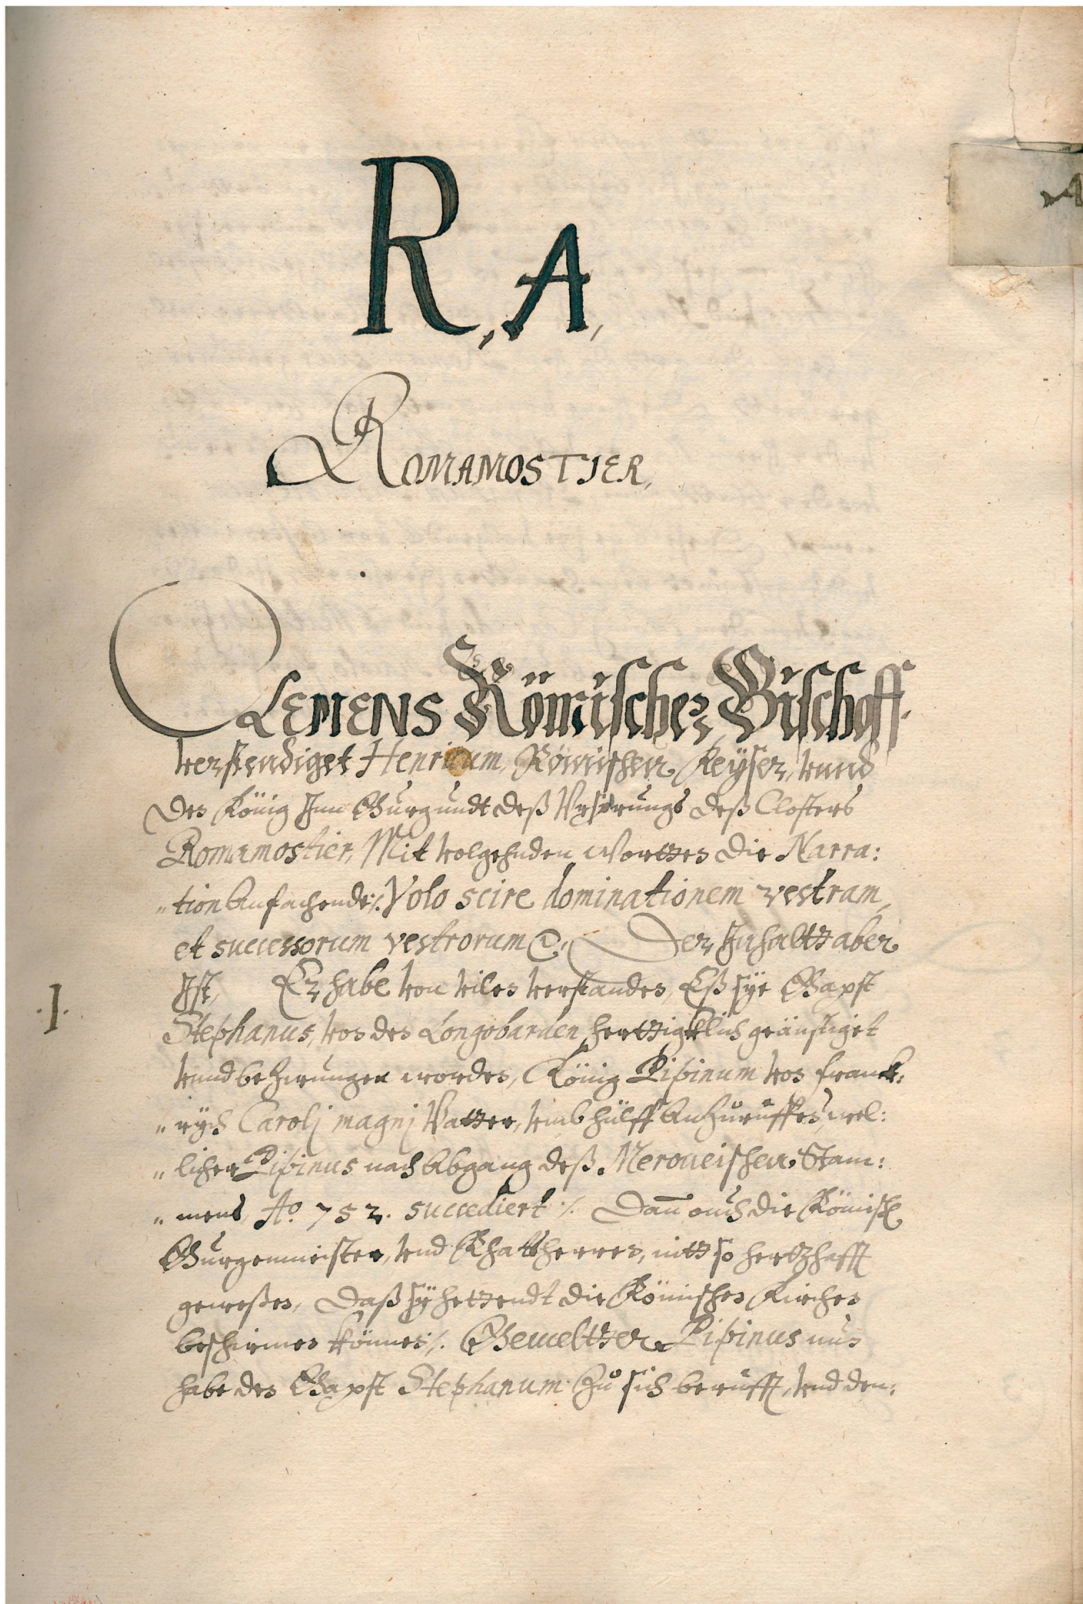 A
R, A,
ROMAMOSTIER,
CLEMENS Römischer Bischoff.
verstendiget Henricum, Römischen Keyser, vnnd
den König Inn Burgundt deß Vrsprungs deß Closters
Romamostier, Mit volgehnden Wortten die Narra:
„tion Anfachende /. Volo scire dominationem vestram,
et successorum vestrorum &. Der Inhaltt aber
Ist, Er habe von vilen verstanden, Eß sye Bapst
.1.
Stephanus, von den Longobarden, herttigklich geänstiget
vnnd bezwungen worden, König Pipinum von Franck:
„rych Carolj magnj Vatter, vmb hülff Anzuruffen, wel:
„licher Pipinus nach Abgang deß Meroueischen Stam:
„mens, Ao. 752. succediert /. Dan̄ ouch die Römisch
Burgermeister, vnd Rhattherren, nitt so hertzhafft
geweßen, Daß sy hettendt die Römischen Kirchen
beschirmen können /. Gemeltter Pipinus nun
habe den Bapst Stephanum zů sich berufft, vnd den: